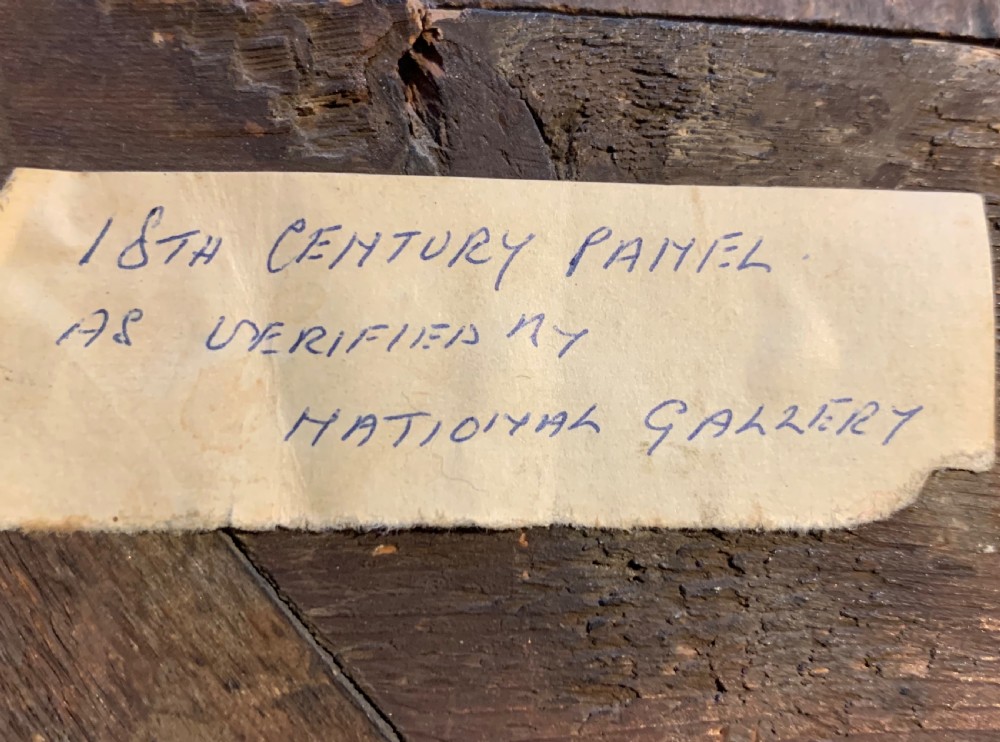 18TH CENTURY PANEL.
AS VERIFIED BY
NATIONAL GALLERY